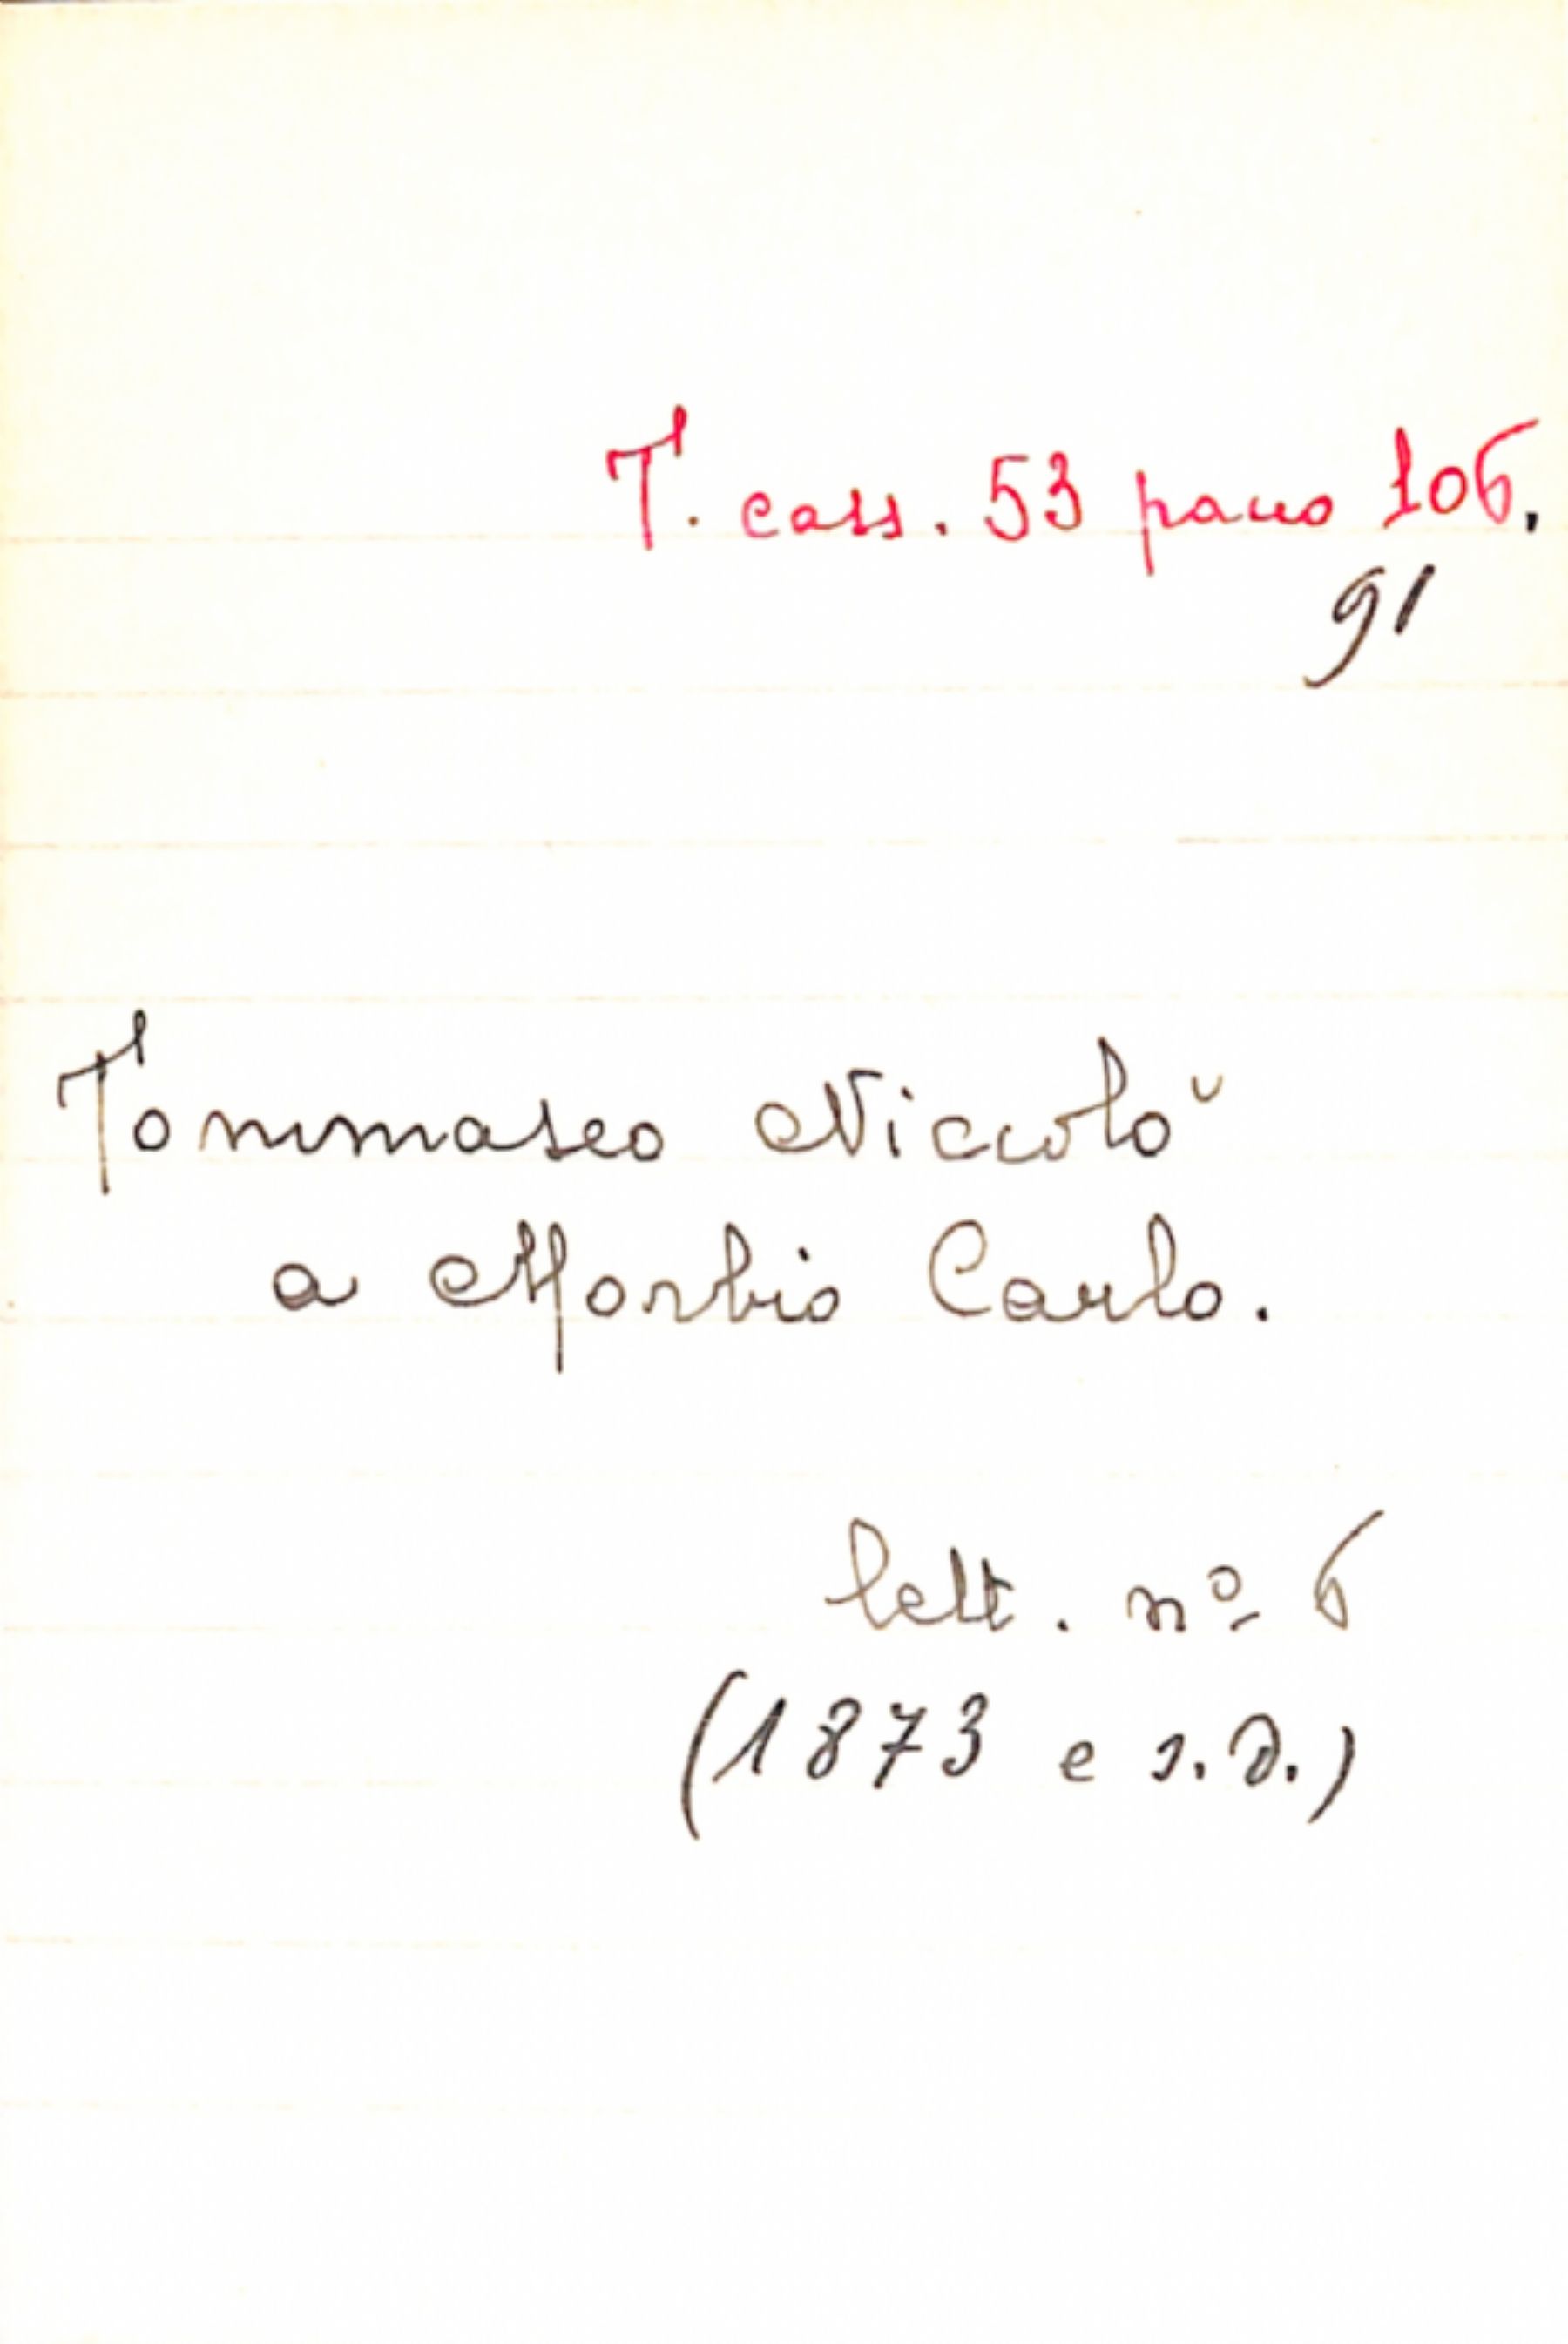 T. cass. 53 pacco 106.
91
Tommaseo Niccolò
a Morbio Carlo.
lett. nº 6
(1873 e s.d.)